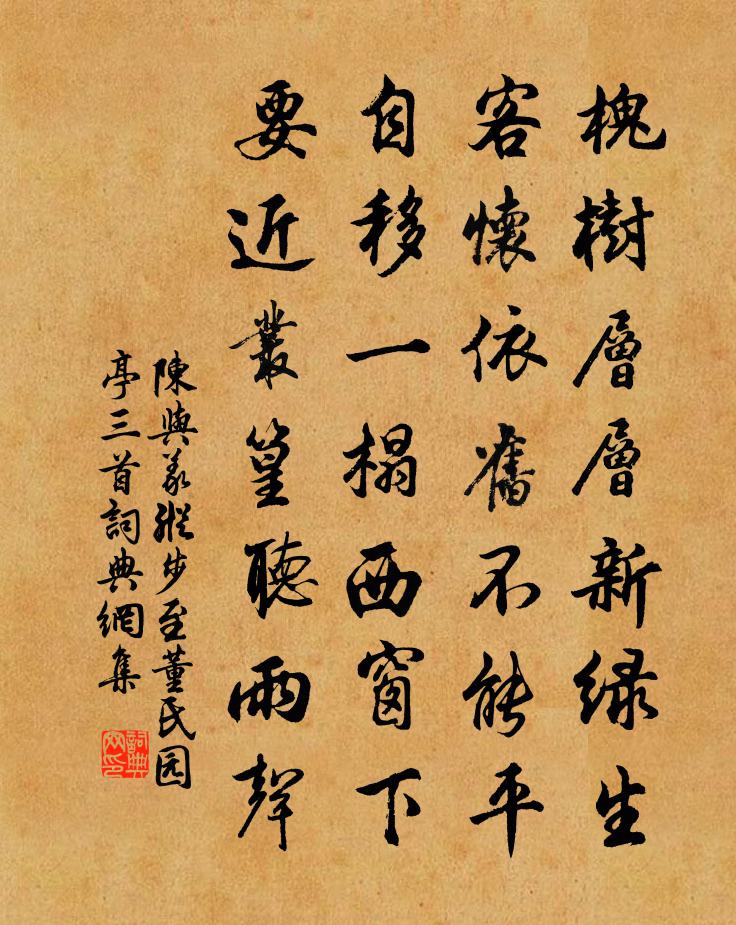 槐樹層層新緑生
客懷依舊不能平
自移一榻西窗下
要近叢篁聽雨聲
陳與義縱步至董氏园
亭三首詞典網集
詞典
网印